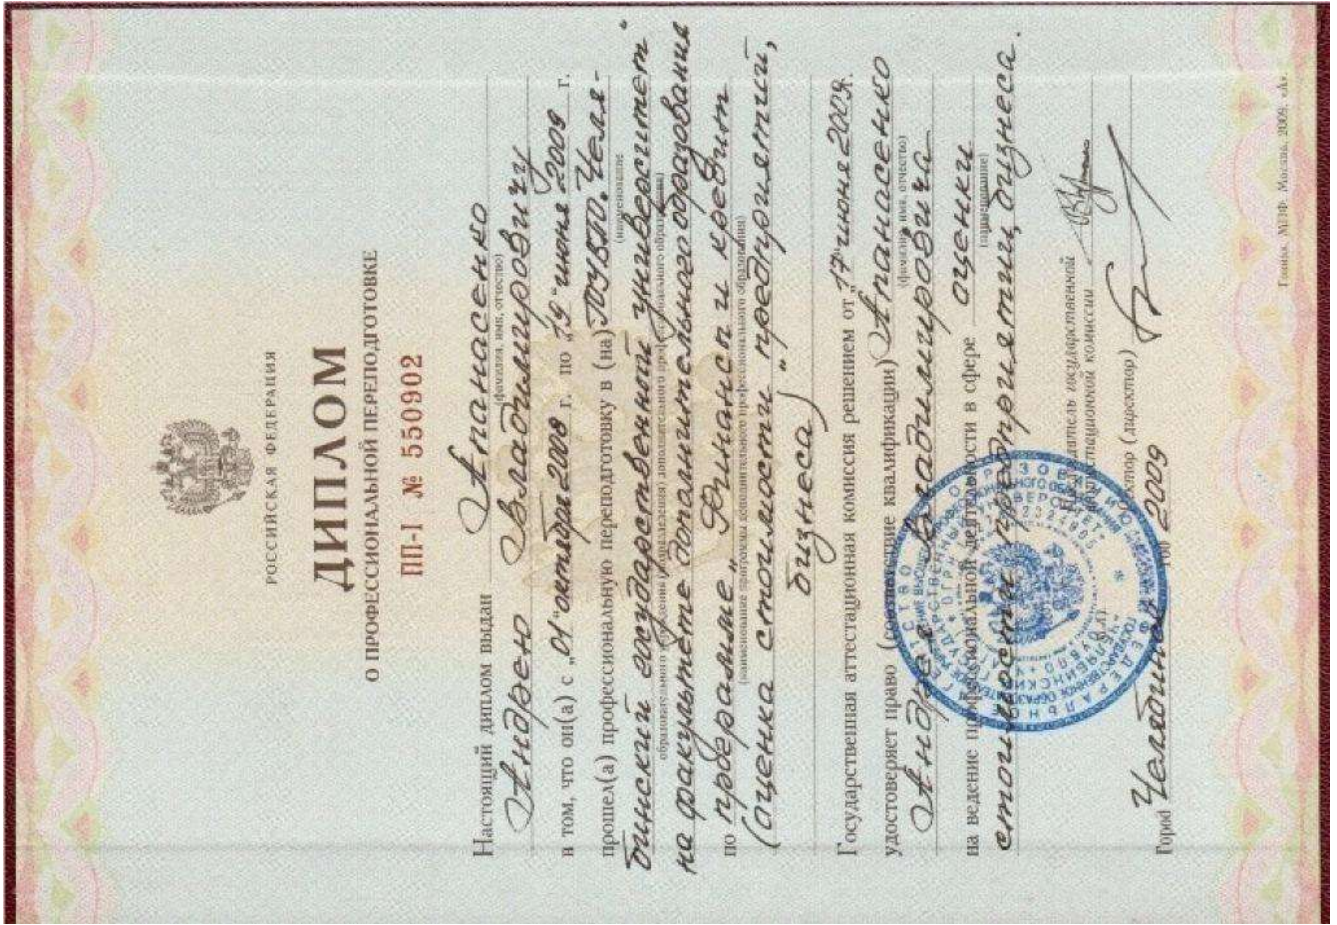 РОССИЙСКАЯ ФЕДЕРАЦИЯ
ДИПЛОМ
О ПРОФЕССИОНАЛЬНОЙ ПЕРЕПОДГОТОВКЕ
ПП-I № 550902
Настоящий диплом выдан Апанасенко
(фамилия, имя, отчество)
Андрею Владимировичу
в том, что он(а) с „01“ октября 2008 г. по „19“ июня 2009 г.
прошел(а) профессиональную переподготовку в (на) ГОУВПО „Челя-
(наименование
бинский государственный университет“
образовательного учреждения (подразделения) дополнительного профессионального образования)
на факультете дополнительного образования
по программе „Финансы и кредит
(наименование программы дополнительного профессионального образования)
(оценка стоимости предприятий,
бизнеса)“
Государственная аттестационная комиссия решением от „17“ июня 2009г.
удостоверяет право (соответствие квалификации) Апанасенко
(фамилия, имя, отчество)
Андрея Владимировича
на ведение профессиональной деятельности в сфере оценки
(наименование)
стоимости предприятий, бизнеса.
Председатель государственной
аттестационной комиссии
Ректор (директор)
Город Челябинск год 2009
Гознак. МПФ. Москва. 2005. «А».